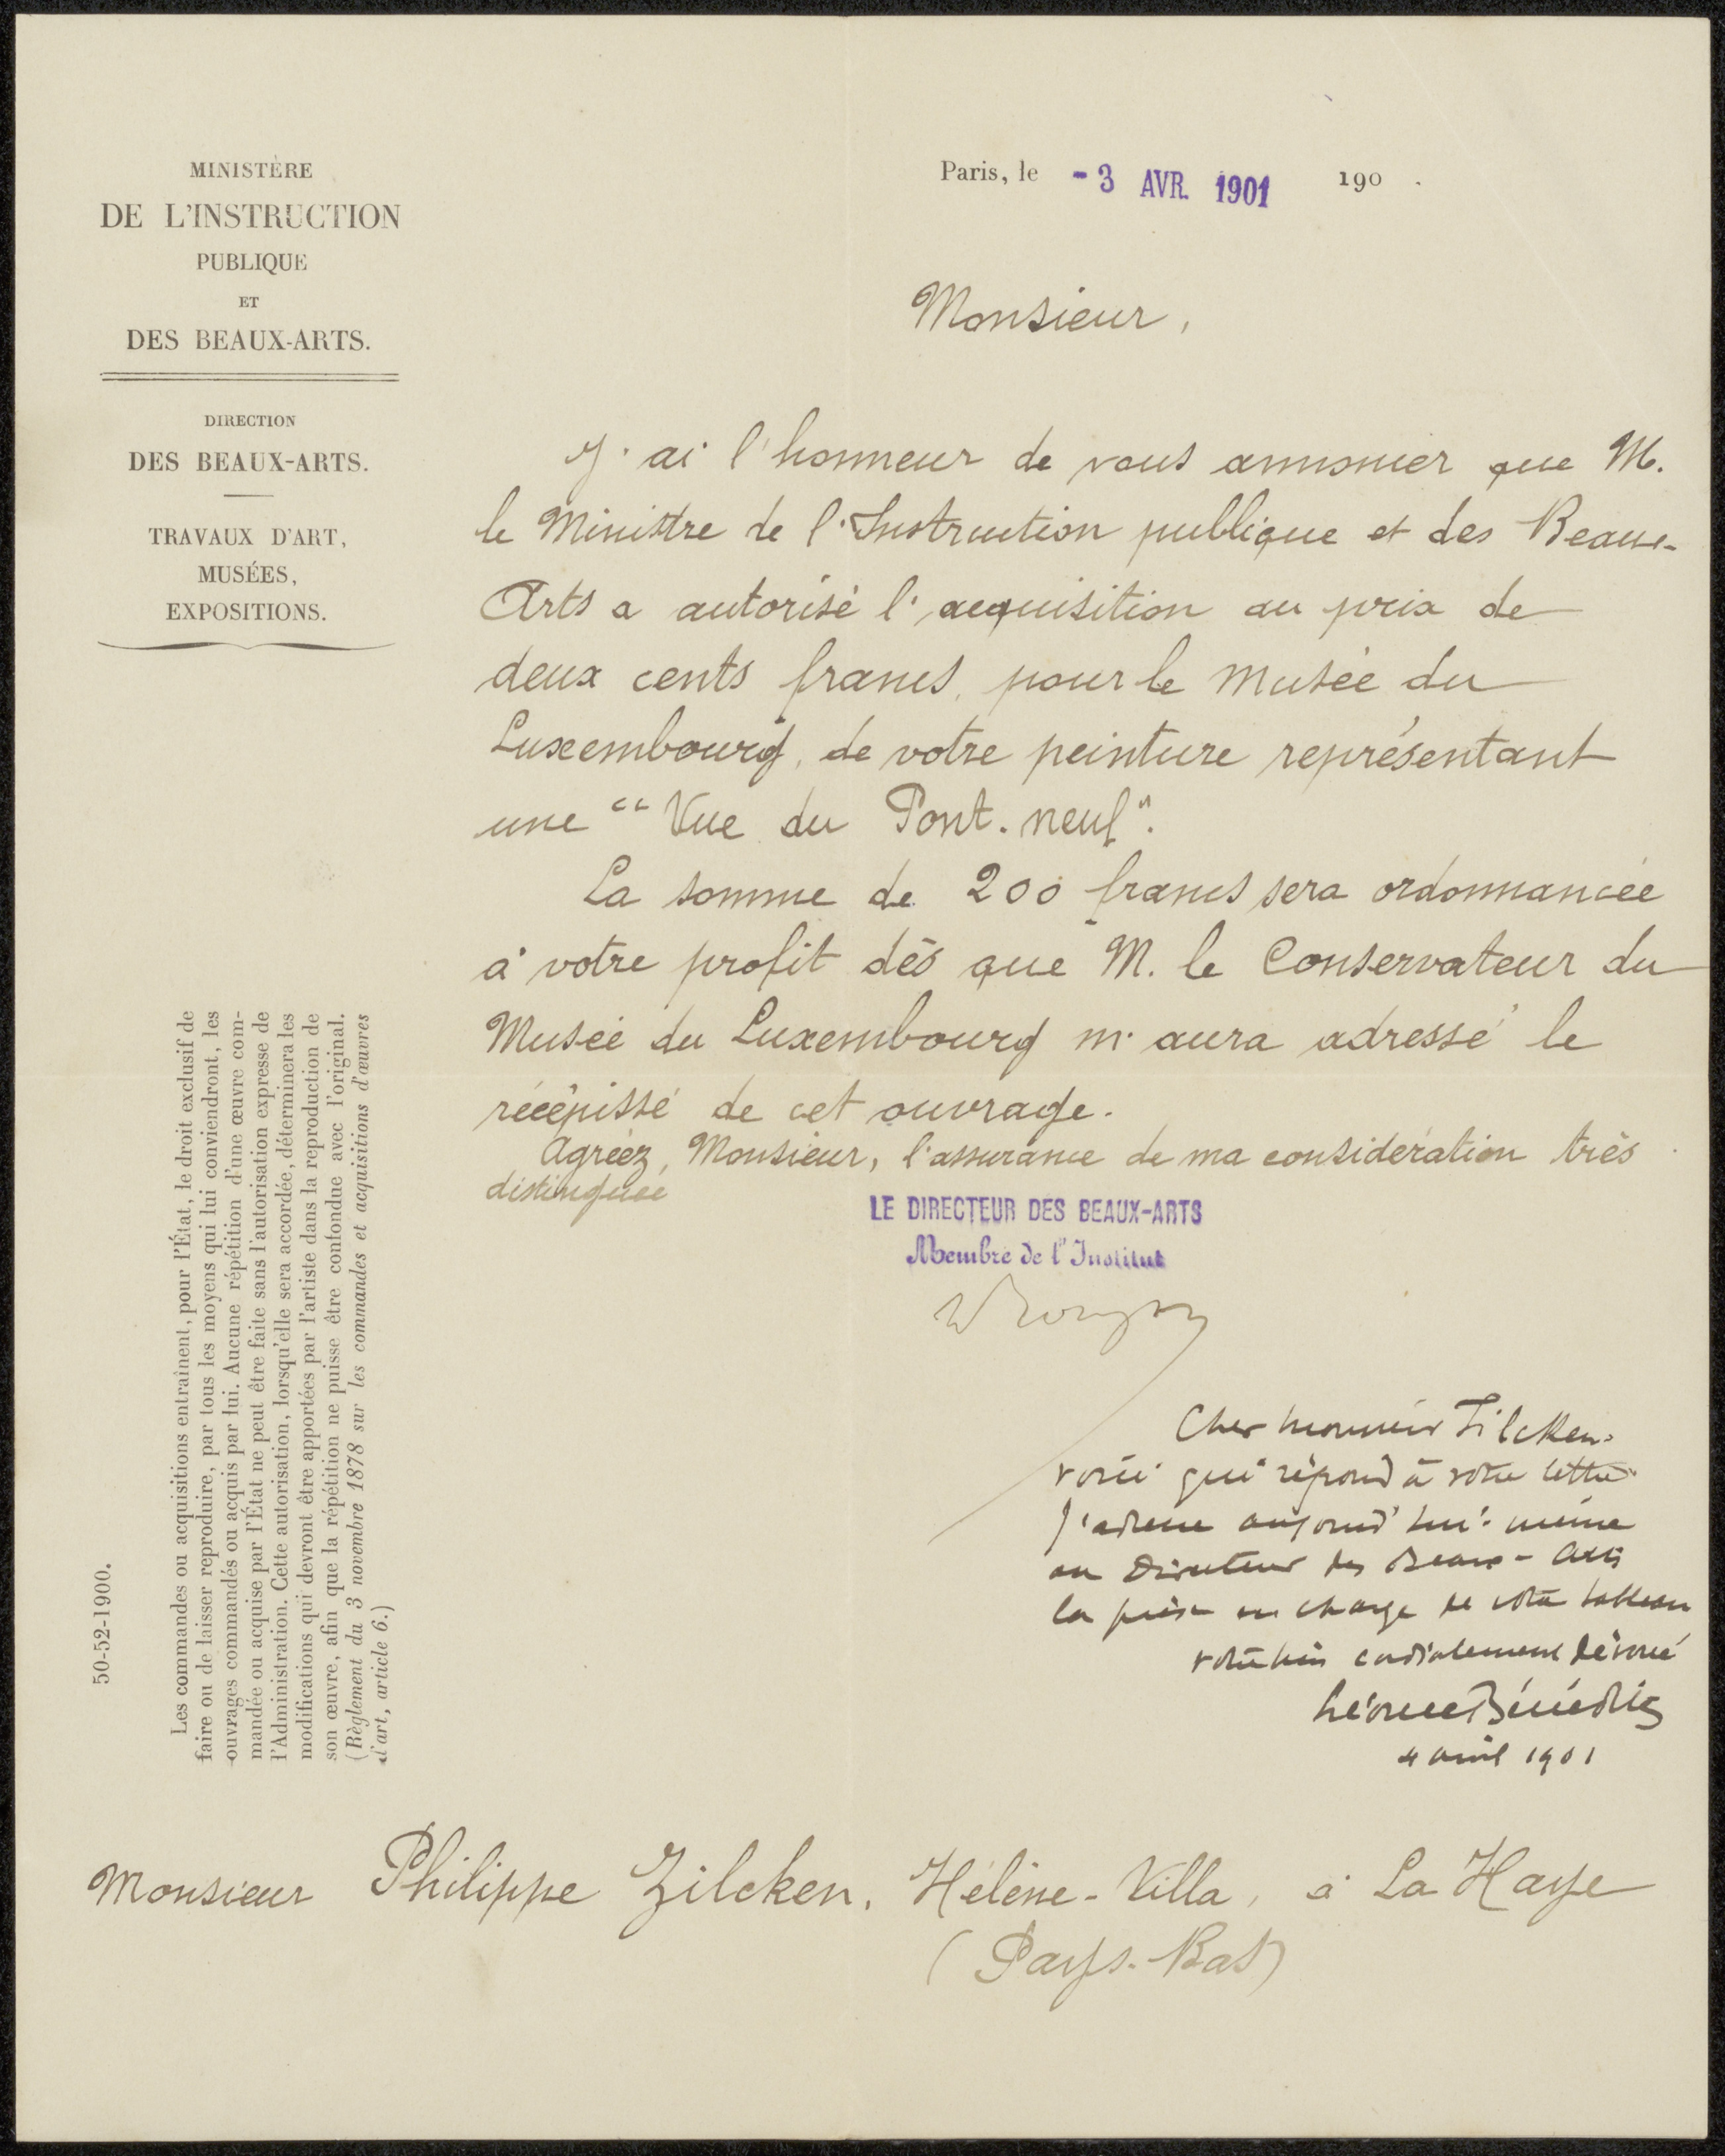 MINISTÈRE
DE L'INSTRUCTION
PUBLIQUE
ET
DES BEAUX-ARTS.
DIRECTION
DES BEAUX-ARTS.
TRAVAUX D'ART,
MUSÉES,
EXPOSITIONS.
Paris, le - 3 AVR. 1901 190 .
Monsieur,
J'ai l'honneur de vous annoncer que M.
le Ministre de l'Instruction publique et des Beaux-
Arts a autorisé l'acquisition au prix de
deux cents francs, pour le Musée du
Luxembourg, de votre peinture représentant
une "Vue du Pont-neuf".
La somme de 200 francs sera ordonnancée
à votre profit dès que M. le Conservateur du
Musée du Luxembourg m'aura adressé le
récépissé de cet ouvrage.
Agréez, Monsieur, l'assurance de ma considération très
distinguée
LE DIRECTEUR DES BEAUX-ARTS
Membre de l'Institut
Cher Monsieur Zilcken.
voici qui répond à votre lettre.
J'adresse aujourd'hui-même
au Directeur des Beaux-Arts
la prise en charge de votre tableau
votre bien cordialement dévoué
Léonce Bénédite
4 avril 1901
Les commandes ou acquisitions entraînent, pour l'État, le droit exclusif de
faire ou de laisser reproduire, par tous les moyens qui lui conviendront, les
ouvrages commandés ou acquis par lui. Aucune répétition d'une œuvre com-
mandée ou acquise par l'État ne peut être faite sans l'autorisation expresse de
l'Administration. Cette autorisation, lorsqu'elle sera accordée, déterminera les
modifications qui devront être apportées par l'artiste dans la reproduction de
son œuvre, afin que la répétition ne puisse être confondue avec l'original.
(Règlement du 3 novembre 1878 sur les commandes et acquisitions d'œuvres
d'art, article 6.)
50-52-1900.
Monsieur Philippe Zilcken, Hélène-Villa, à La Haye
(Pays-Bas)